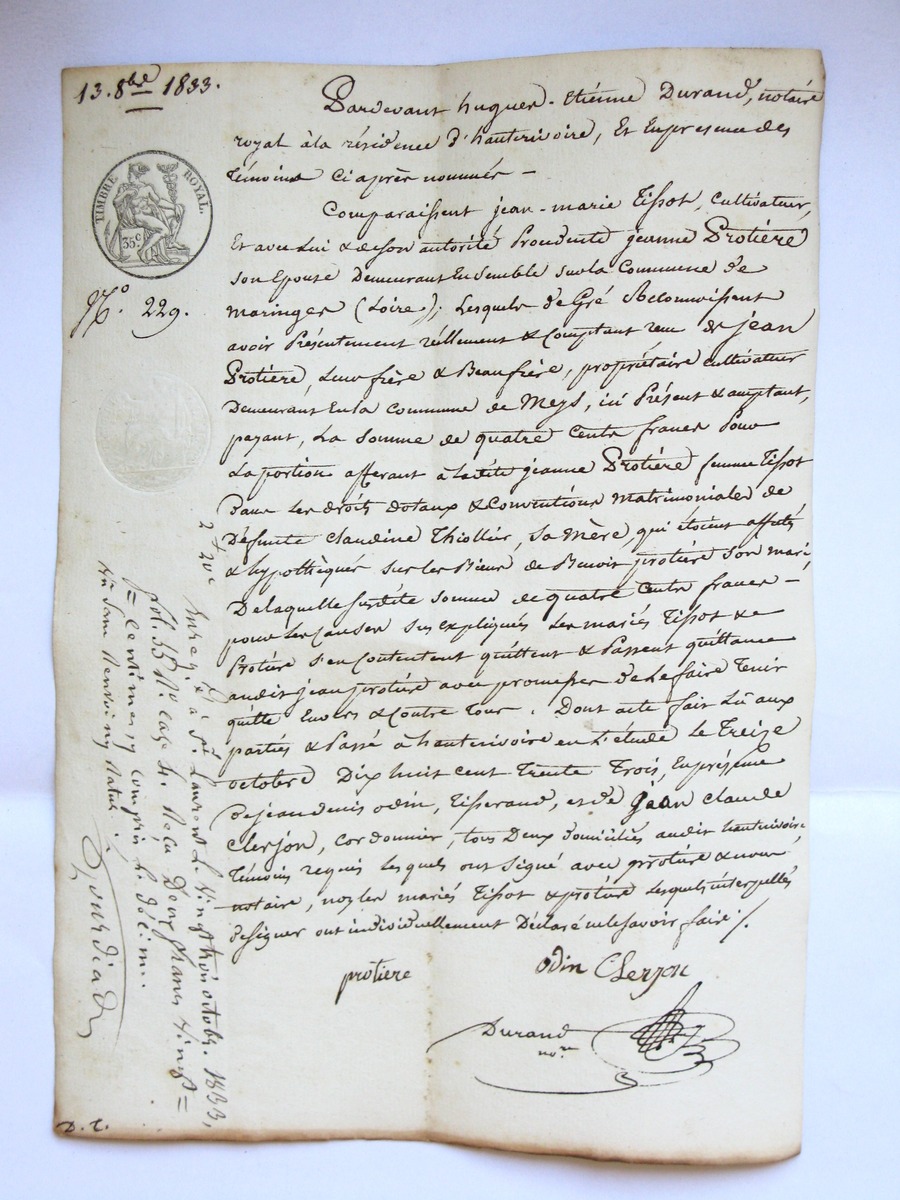 13. 8bre 1833.
TIMBRE ROYAL.
35c
No. 229.
Pardevant hugues-Etienne Durand, notaire
royal à la résidence d'hauterivoire, Et En presence des
témoins Ci après nommés –
Comparaissent jean-marie Tissot, Cultivateur,
Et avec Lui & de son autorité Procedente jeanne Protière
son Epouse Demeurant Ensemble sur la Commune de
maringes (Loire); Lesquels de Gré Reconnaissent
avoir Présentement réellement & Comptant reçu de jean
Protière, Leur frère & Beaufrère, propriétaire cultivateur
Demeurant En la Commune de Meys, ici Présent & acceptant,
payant, La Somme de quatre Cents francs Pour
La portion afferant à ladite jeanne Protière femme Tissot
Dans Les droits dotaux & Conventions matrimoniales de
Défunte Claudine Thiollier, Sa Mère, qui étoient affectés
& hypothèqués sur les Biens de Benoit protière son mari,
De laquelle susdite somme de quatre Cents francs –
pour Les Causes sus expliqués Les mariés Tissot &
Protière s'en Contentent quittent & Passent quittance
audit jean protière avec promesses de Le faire Tenir
quitte Envers & Contre Tous. Dont acte fait Lû aux
parties & Passé à hauterivoire en L'étude Le Treize
octobre Dix huit cent Trente Trois, En présence
De jean denis odin, Tisserand, et de jean Claude
Clerjon, Cordonnier, tous Deux domiciliés audit hauterivoire,
Témoins requis Lesquels ont signé avec protière & nous
notaire, non les mariés Tissot & protière Lesquels interpellés
de signer ont individuellement Déclaré ne le savoir faire ./.
protiere
odin Clerjon
Durand
nore
2f 20c
Enregté à St Laurent Le vingt trois octobre 1833,
fol. 35 Ro case 4. Reçu Deux francs vingt =
= centimes compris Le décime.
Gourdiad
D. C.